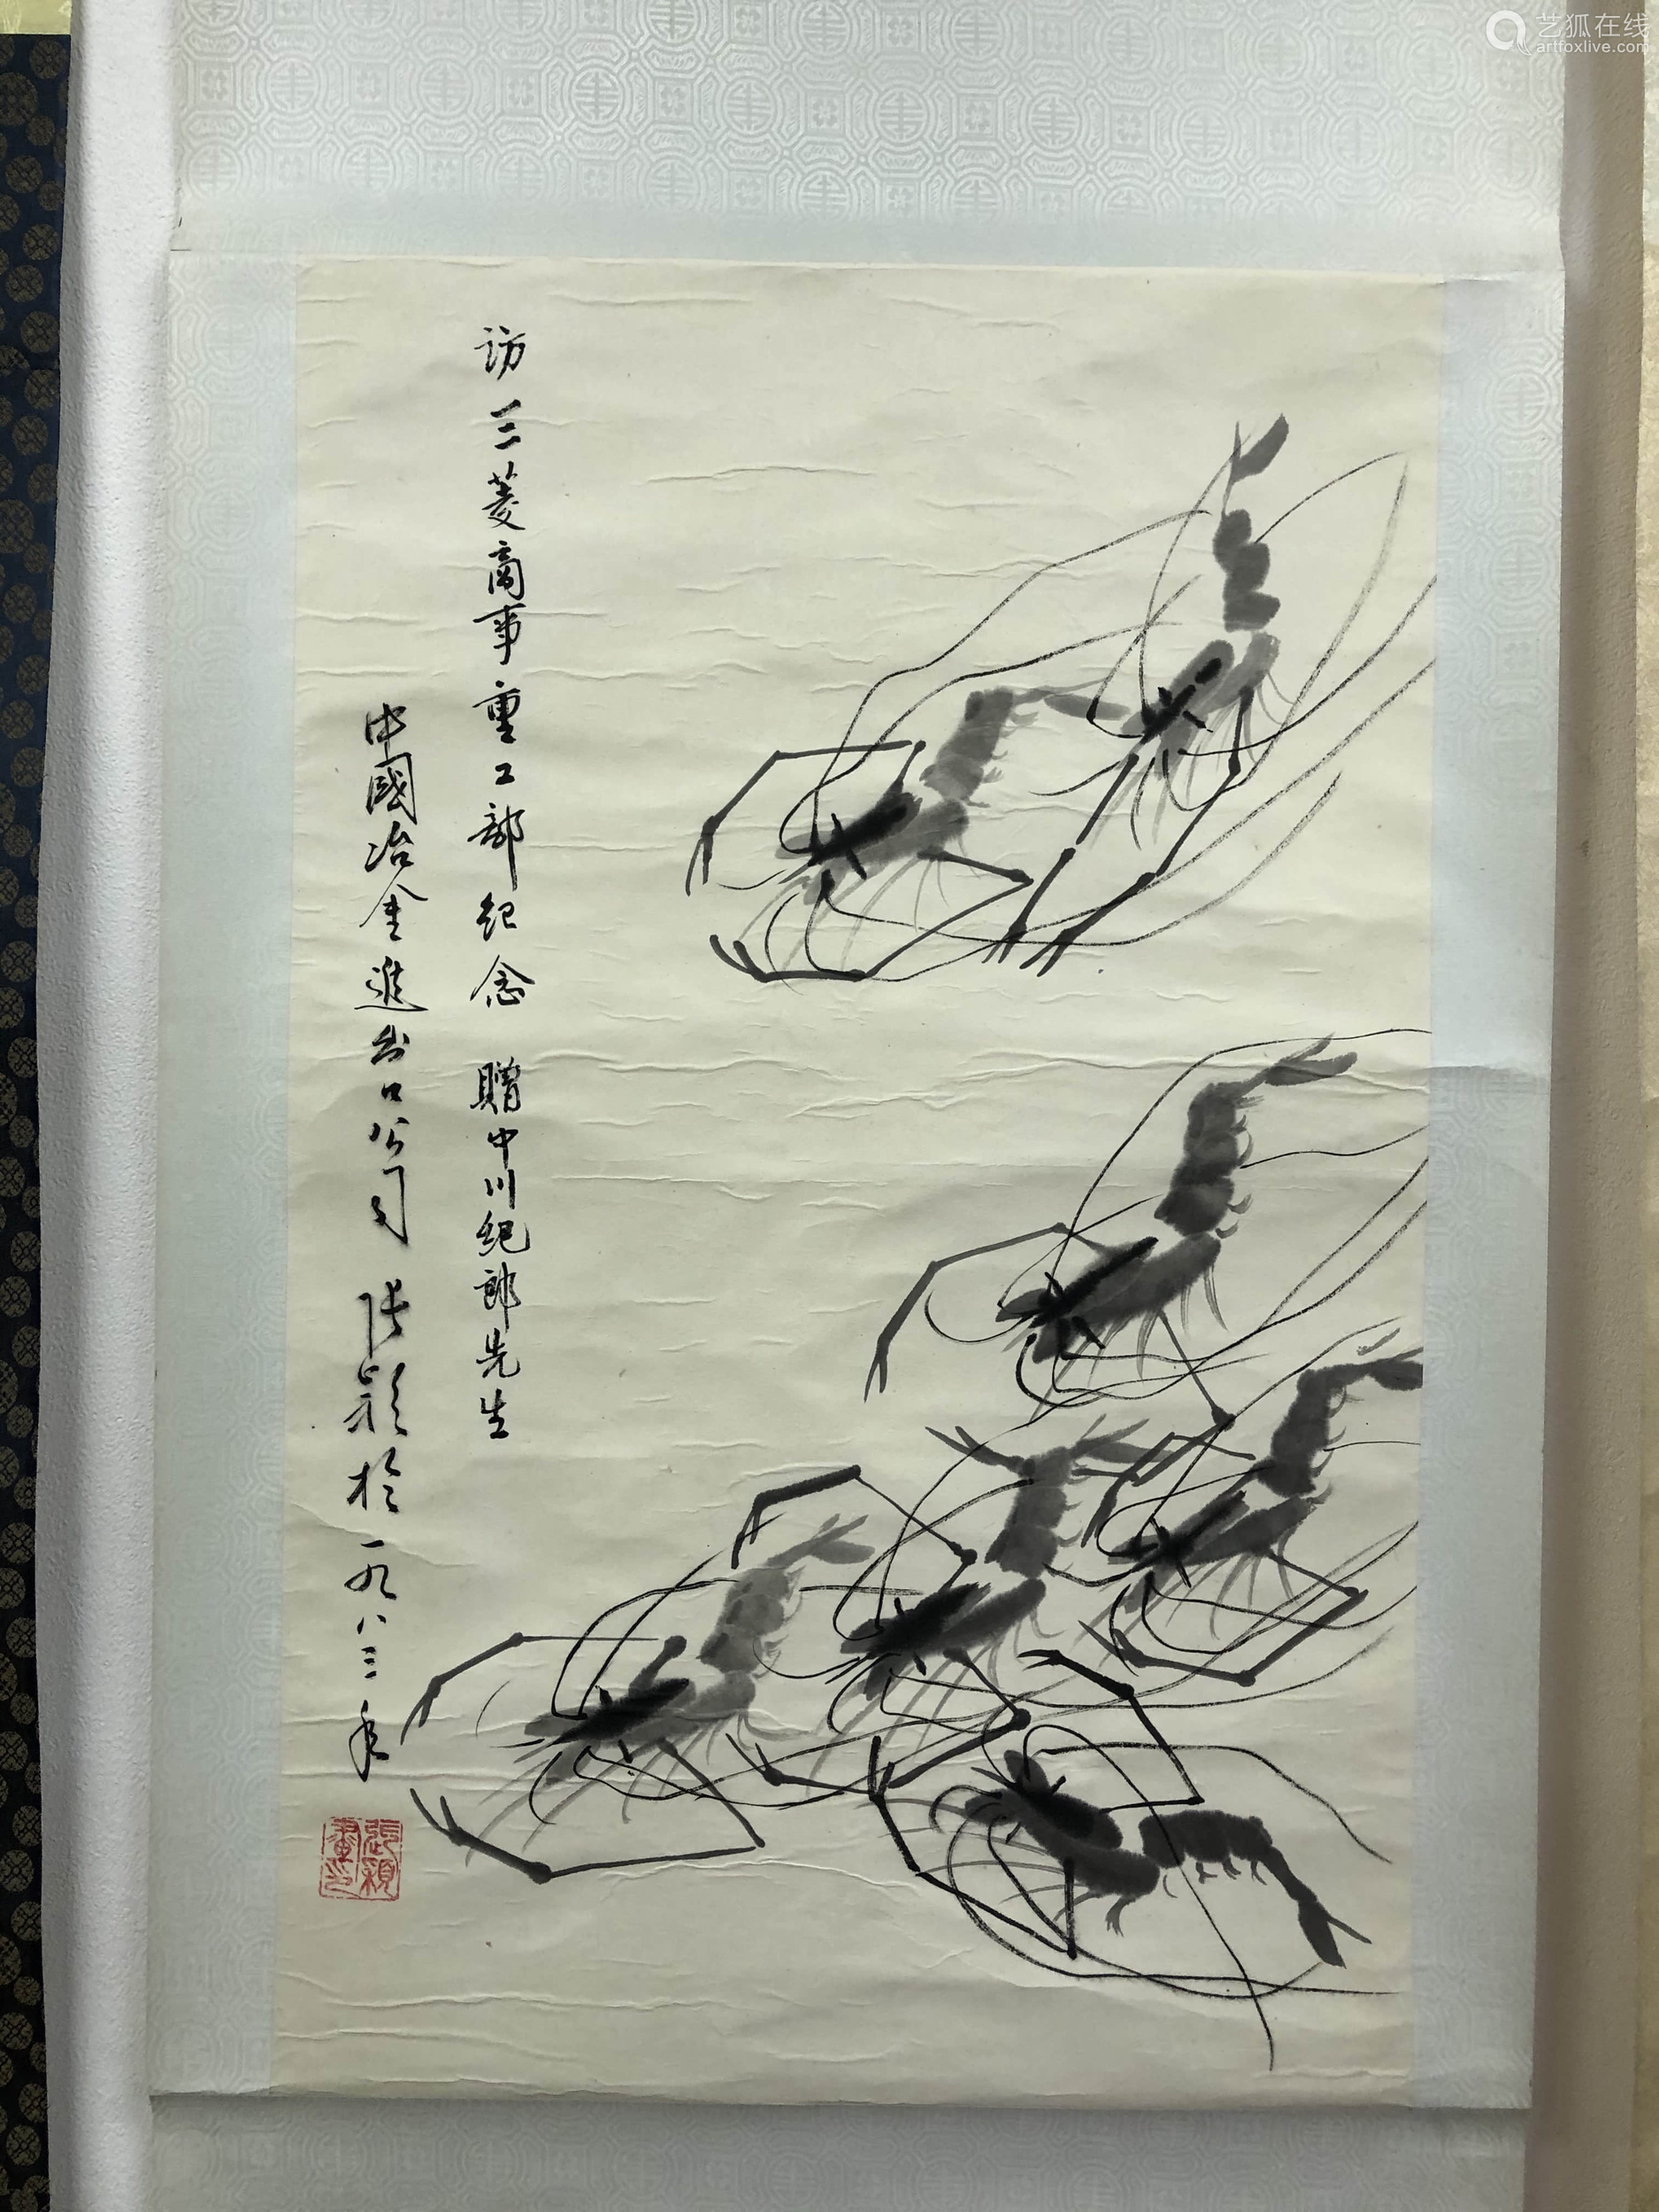 访三菱商事重工部纪念 贈中川纪郎先生
中國冶金進出口公司 张颖於一九八三年
張穎畫印
艺狐在线
artfoxlive.com